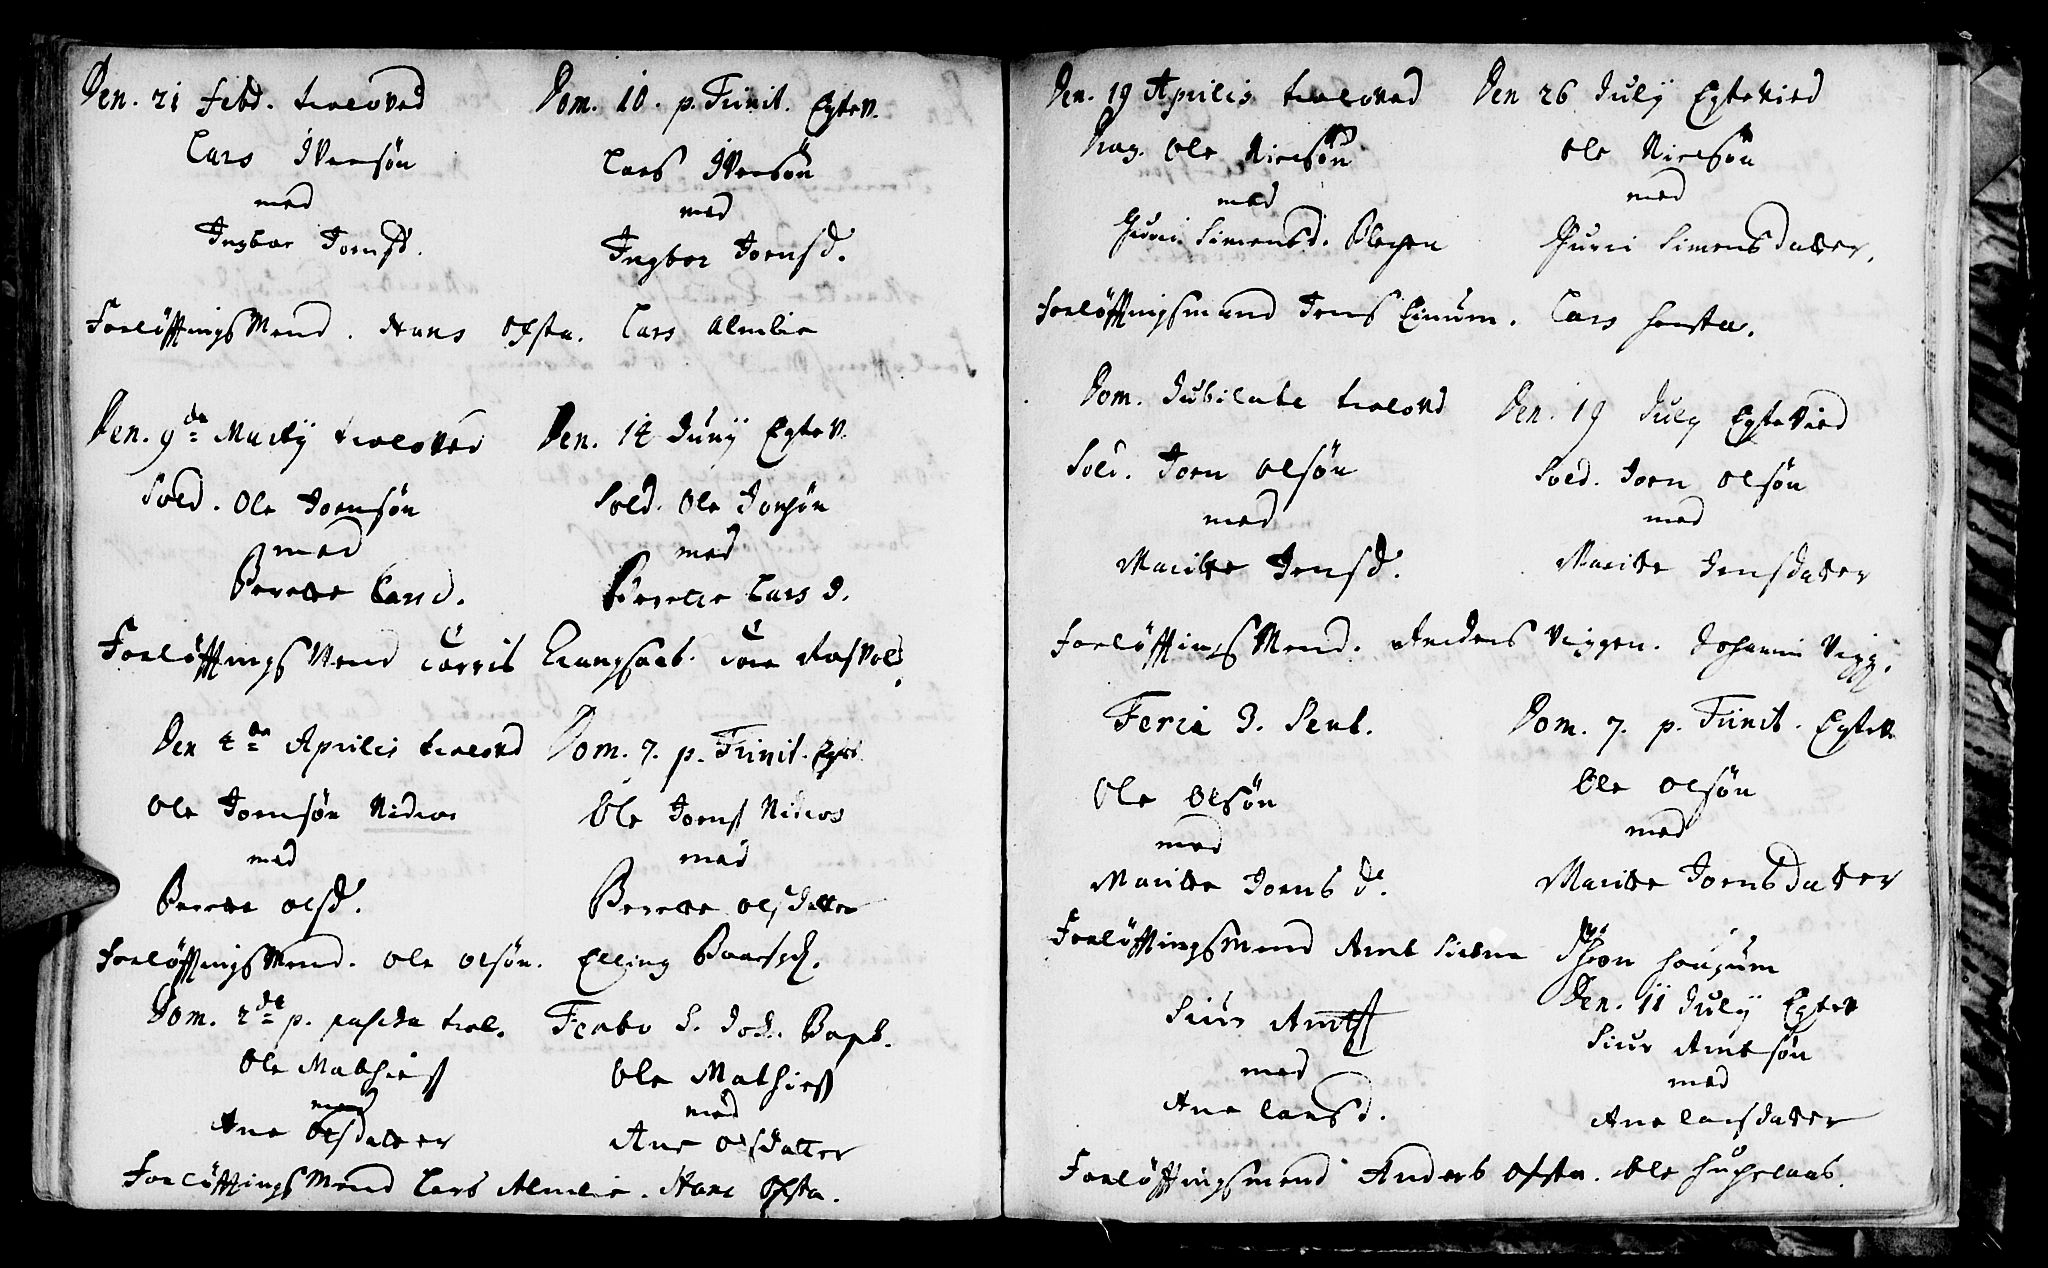 Den. 21 Febr. troloved
Lars Iversøn
med
Ingbor Jonsd.
Dom. 10. p. Trinit. Egtev.
Lars Iversøn
med
Ingbor Jonsd.
Forløfftningsmend. Hans Ofsta. Lars Almlie
Den. 9de Martij troloved
Sold. Ole Jonsøn
med
Berette Larsd.
Den. 14 Junij Egtev.
Sold. Ole Jonsøn
med
Berette Lars d.
Forløfftningsmend Torris Tore
Den 4de Aprilis trolovd
Ole Jonsøn Nidros
med
Berette Olsd.
Dom. 7. p. Trinit. Egtev
Ole Jonss Nidros
med
Berette Olsdatter
Forløfftningsmend. Ole Olsøn. Elling
Dom. 2de p. pascha trol.
Ole Mathiess
med
Ane Olsdatter
Festo S. Joh. Bapt.
Ole Mathiess
med
Ane Olsdatter
Forløfftningsmend Lars Almlie. Hans Ofsta.
Den. 19 Aprilis troloved
Drag. Ole Nielsøn
med
Guri Simensd. Blegen
Den 26 July Egtevied
Ole Nielsøn
med
Guri Simensdatter.
Forløfftningsmend Jens Einum. Lars
Dom. Jubilate trolovd
Sold. Jon Olsøn
med
Maritte Jensd.
Den. 19 July Egtevied
Sold. Jon Olsøn
med
Maritte Jensdatter
Forløfftningsmend. Anders Viggen. Johannis Vigg.
Feria 3. Pent.
Ole Olsøn
med
Maritte Jons dr.
Dom. 7. p. Trinit. Egtev.
Ole Olsøn
med
Maritte Jonsdatter
Forløfftningsmend Arnt Haugum
Siur Arntss
med
Ane Larsd.
Den. 11 July Egtev
Siur Arntsøn
med
Ane Larsdatter
Forløfftningsmend Anders Ofsta. Ole